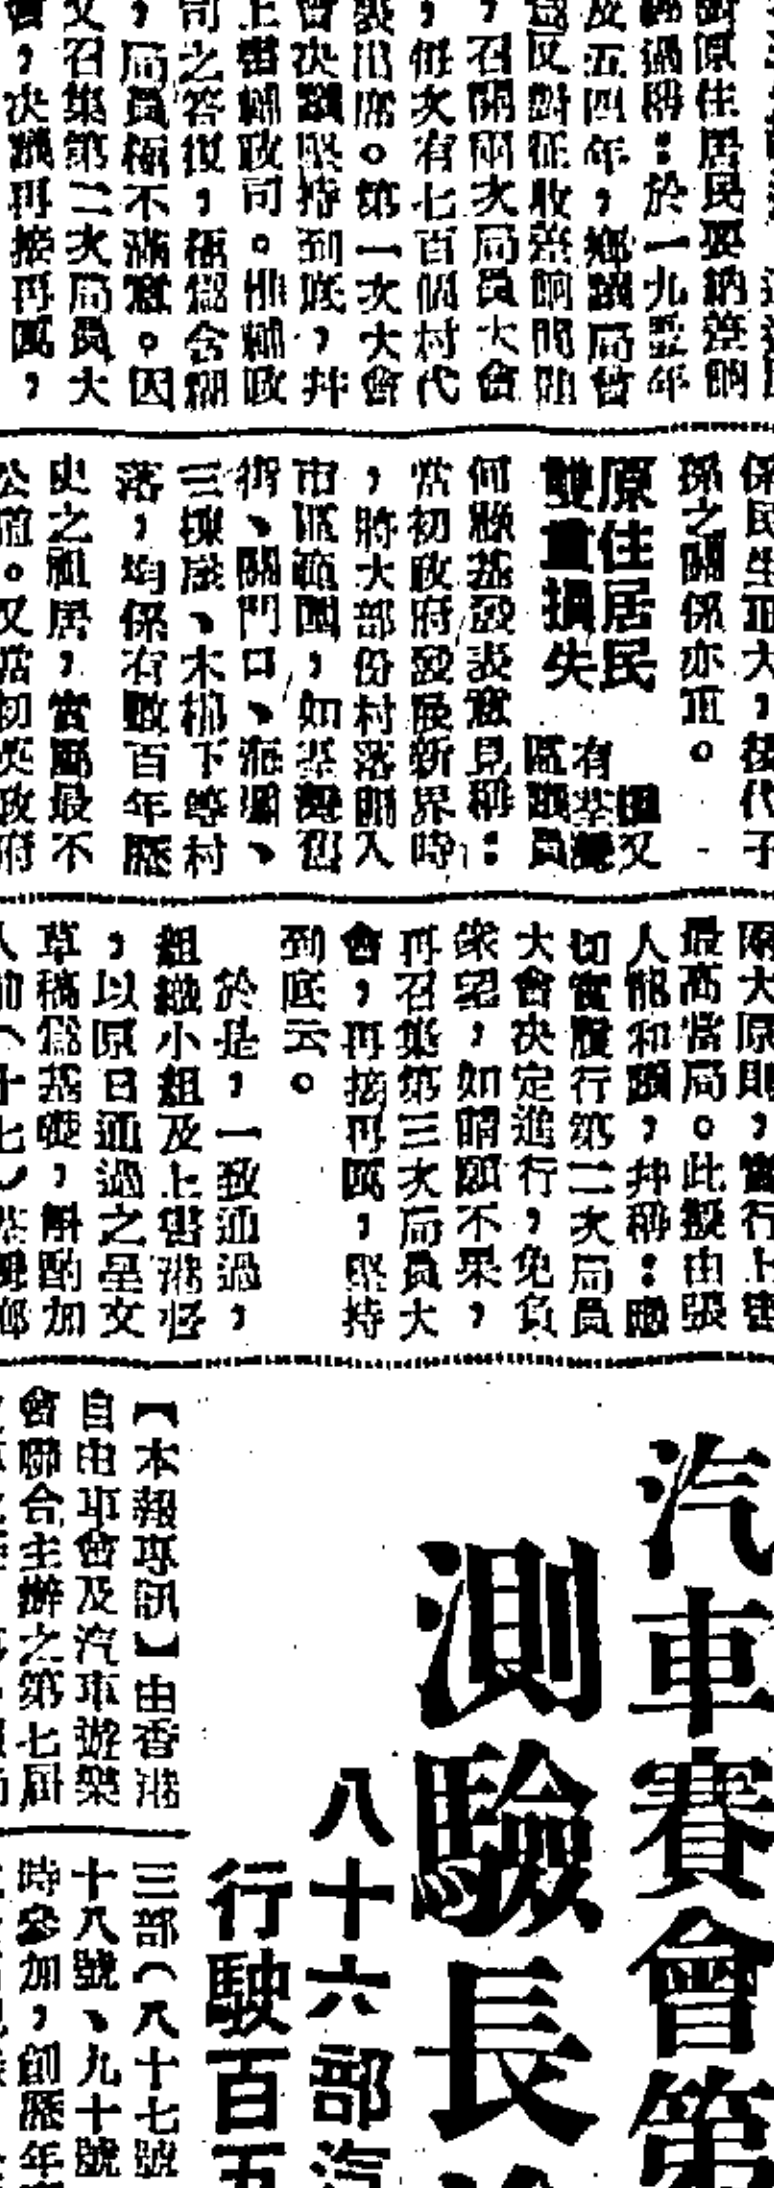 對原住居民要納差餉
經過稱：於一九五三年
及五四年，鄉議局曾
爲反對征收差餉問題
，召開兩次局員大會
，每次有七百個村代
表出席。第一次大會
會決議堅持到底，幷
上書輔政司。惟輔政
司之答復，極爲含糊
，局員極不滿意。因
又召集第二次局員大
會，決議再接再厲，
係民生重大，後代子
孫之關係亦重。
原住居民
雙重損失
又
有荃灣
區議員
何勝基發表意見稱：
當初政府發展新界時
，將大部份村落開入
市區範圍，如荃灣舊
街、關門口、海壩、
三棟屋、木棉下等村
落，均係有數百年歷
史之祖居，實屬最不
公道。又當初英政府
兩大原則，當行上書
最高當局。此擬由張
人龍和議，幷稱：應
切實履行第二次局員
大會決定進行，免負
衆望，如請願不果，
再召集第三次局員大
會，再接再厲，堅持
到底云。
於是，一致通過，
組織小組及上書港督
，以原日通過之呈文
草稿爲基礎，斟酌加
人前（十七）荃灣鄉
汽車賽會第
測驗長
八十六部汽
行駛百五
【本報專訊】由香港
自由車會及汽車遊樂
會聯合主辦之第七屆
三部（八十七號
十八號、九十號
時參加，創歷年